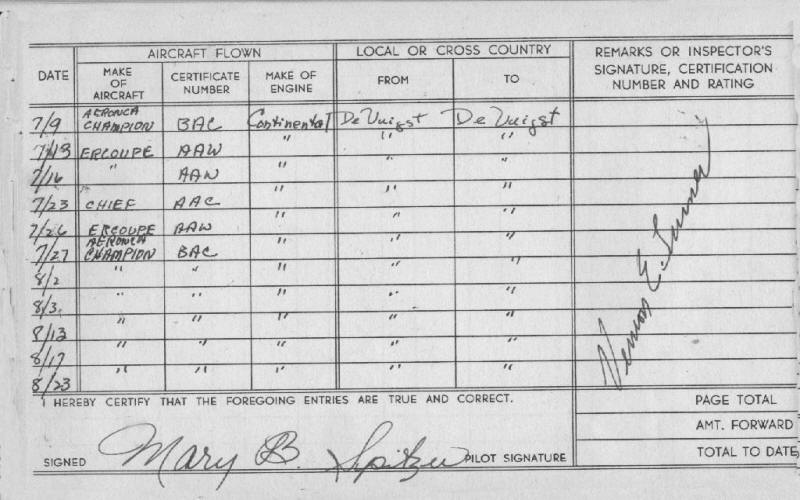 AIRCRAFT FLOWN LOCAL OR CROSS COUNTRY REMARKS OR INSPECTOR'S SIGNATURE, CERTIFICATION NUMBER AND RATING
DATE MAKE OF AIRCRAFT CERTIFICATE NUMBER MAKE OF ENGINE FROM TO
7/9 AERONCA CHAMPION BAC Continental De Vuigst De Vuigst
7/13 ERCOUPE AAW " " "
7/16 " AAW " " "
7/23 CHIEF AAC " " "
7/26 ERCOUPE AAW " " "
7/27 AERONCA CHAMPION BAC " " "
8/2 " " " " "
8/3 " " " " "
8/13 " " " " "
8/17 " " " " "
8/23 " " " " "
E. Turner
I HEREBY CERTIFY THAT THE FOREGOING ENTRIES ARE TRUE AND CORRECT.
PAGE TOTAL
AMT. FORWARD
TOTAL TO DATE
SIGNED Mary B. Spitzer PILOT SIGNATURE